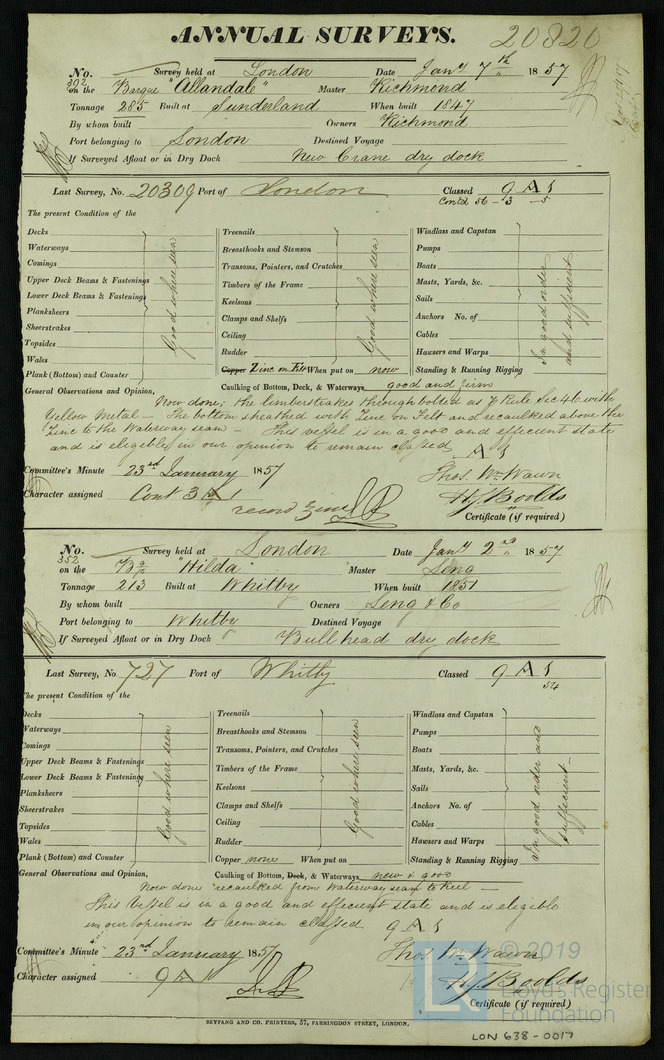 ANNUAL SURVEYS. 20820
No. 392 Survey held at London Date Jany 7th 1857
on the Barque "Allandale" Master Richmond
Tonnage 285 Built at Sunderland When built 1847
By whom built Owners Richmond
Port belonging to London Destined Voyage
If Surveyed Afloat or in Dry Dock New Crane dry dock
Last Survey, No. 20309 Port of London Classed 9 A 1
Contd 56 - 3 - 5
The present Condition of the
Decks
Waterways
Comings
Upper Deck Beams & Fastenings
Lower Deck Beams & Fastenings
Planksheers
Sheerstrakes
Topsides
Wales
Plank (Bottom) and Counter
Good where seen
Treenails
Breasthooks and Stemson
Transoms, Pointers, and Crutches
Timbers of the Frame
Keelsons
Clamps and Shelfs
Ceiling
Rudder
Good where seen
Copper Zinc on Felt When put on now
Caulking of Bottom, Deck, & Waterways good and firm
Windlass and Capstan
Pumps
Boats
Masts, Yards, &c.
Sails
Anchors No. of
Cables
Hausers and Warps
Standing & Running Rigging
In good order and sufficient
General Observations and Opinion,
Now done; the limberstrakes through bolted as P Rule Sec 46 with
Yellow Metal - The bottom sheathed with Zinc on Felt and recaulked above the
Zinc to the Waterway seam - This vessel is in a good and efficient state
and is eligible in our opinion to remain classed A 1
Committee's Minute 23rd January 1857
Character assigned Cont 3 A 1
record Zinc
Thos. Wm Wawn
H J Boolds
Certificate (if required)
No. 352 Survey held at London Date Jany 2nd 1857
on the Bq "Hilda" Master Seng
Tonnage 213 Built at Whitby When built 1851
By whom built Owners Seng & Co
Port belonging to Whitby Destined Voyage
If Surveyed Afloat or in Dry Dock Bull head dry dock
Last Survey, No 727 Port of Whitby Classed 9 A 1
54
The present Condition of the
Decks
Waterways
Comings
Upper Deck Beams & Fastenings
Lower Deck Beams & Fastenings
Planksheers
Sheerstrakes
Topsides
Wales
Plank (Bottom) and Counter
Good where seen
Treenails
Breasthooks and Stemson
Transoms, Pointers, and Crutches
Timbers of the Frame
Keelsons
Clamps and Shelfs
Ceiling
Rudder
Good where seen
Copper none When put on
Caulking of Bottom, Deck, & Waterways new & good
Windlass and Capstan
Pumps
Boats
Masts, Yards, &c.
Sails
Anchors No. of
Cables
Hausers and Warps
Standing & Running Rigging
In good order and sufficient
General Observations and Opinion,
Now done recaulked from Waterway seam to Keel -
This Vessel is in a good and efficient state and is eligible
in our opinion to remain classed 9 A 1
Committee's Minute 23rd January 1857
Character assigned 9 A 1
Thos. Wm Wawn
H J Boolds
Certificate (if required)
SEYFANG AND CO. PRINTERS, 57, FARRINGDON STREET, LONDON.
© 2019
LR
Lloyd's Register
Foundation
LON 638-0017